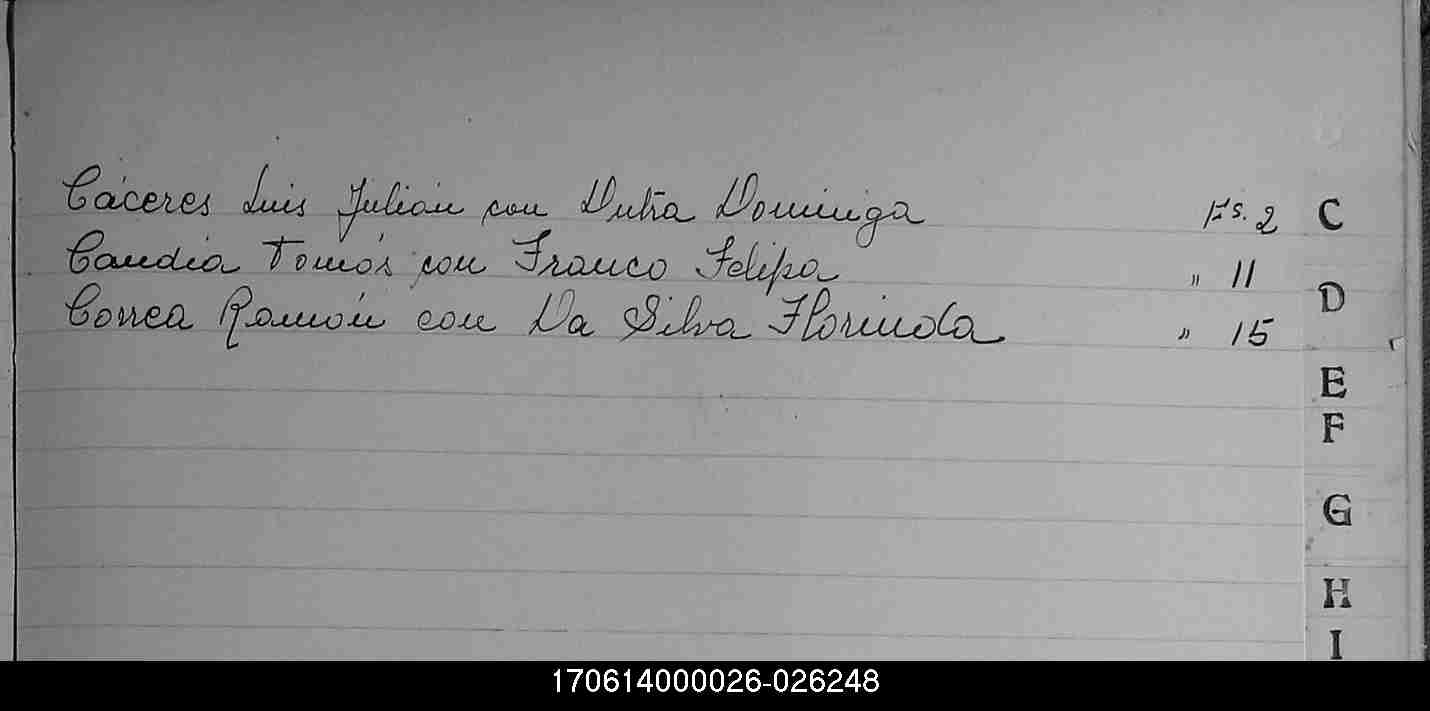 Cáceres Luis Julián con Dutra Dominga Fs. 2 C
Candia Tomás con Franco Felipa " 11
D
Correa Ramón con Da Silva Florinda " 15
E
F
G
H
I
170614000026-026248